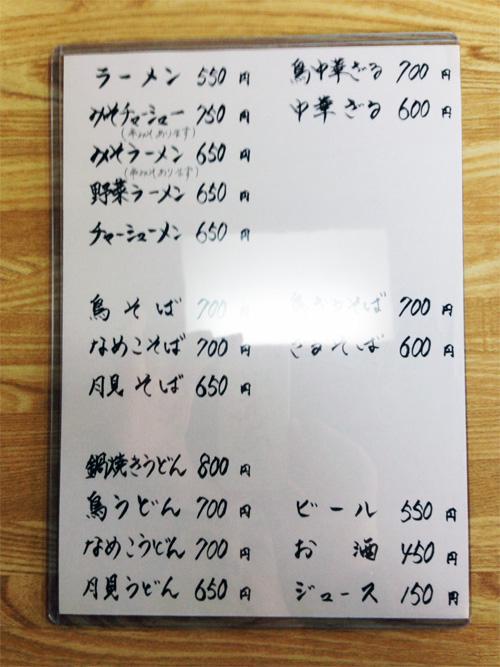 ラーメン 550円
みそチャーシュー 750円
(辛みそあります)
みそラーメン 650円
(辛みそあります)
野菜ラーメン 650円
チャーシューメン 650円
鳥そば 700円
なめこそば 700円
月見そば 650円
鍋焼きうどん 800円
鳥うどん 700円
なめこうどん 700円
月見うどん 650円
鳥中華ざる 700円
中華ざる 600円
鳥ざるそば 700円
ざるそば 600円
ビール 550円
お酒 450円
ジュース 150円